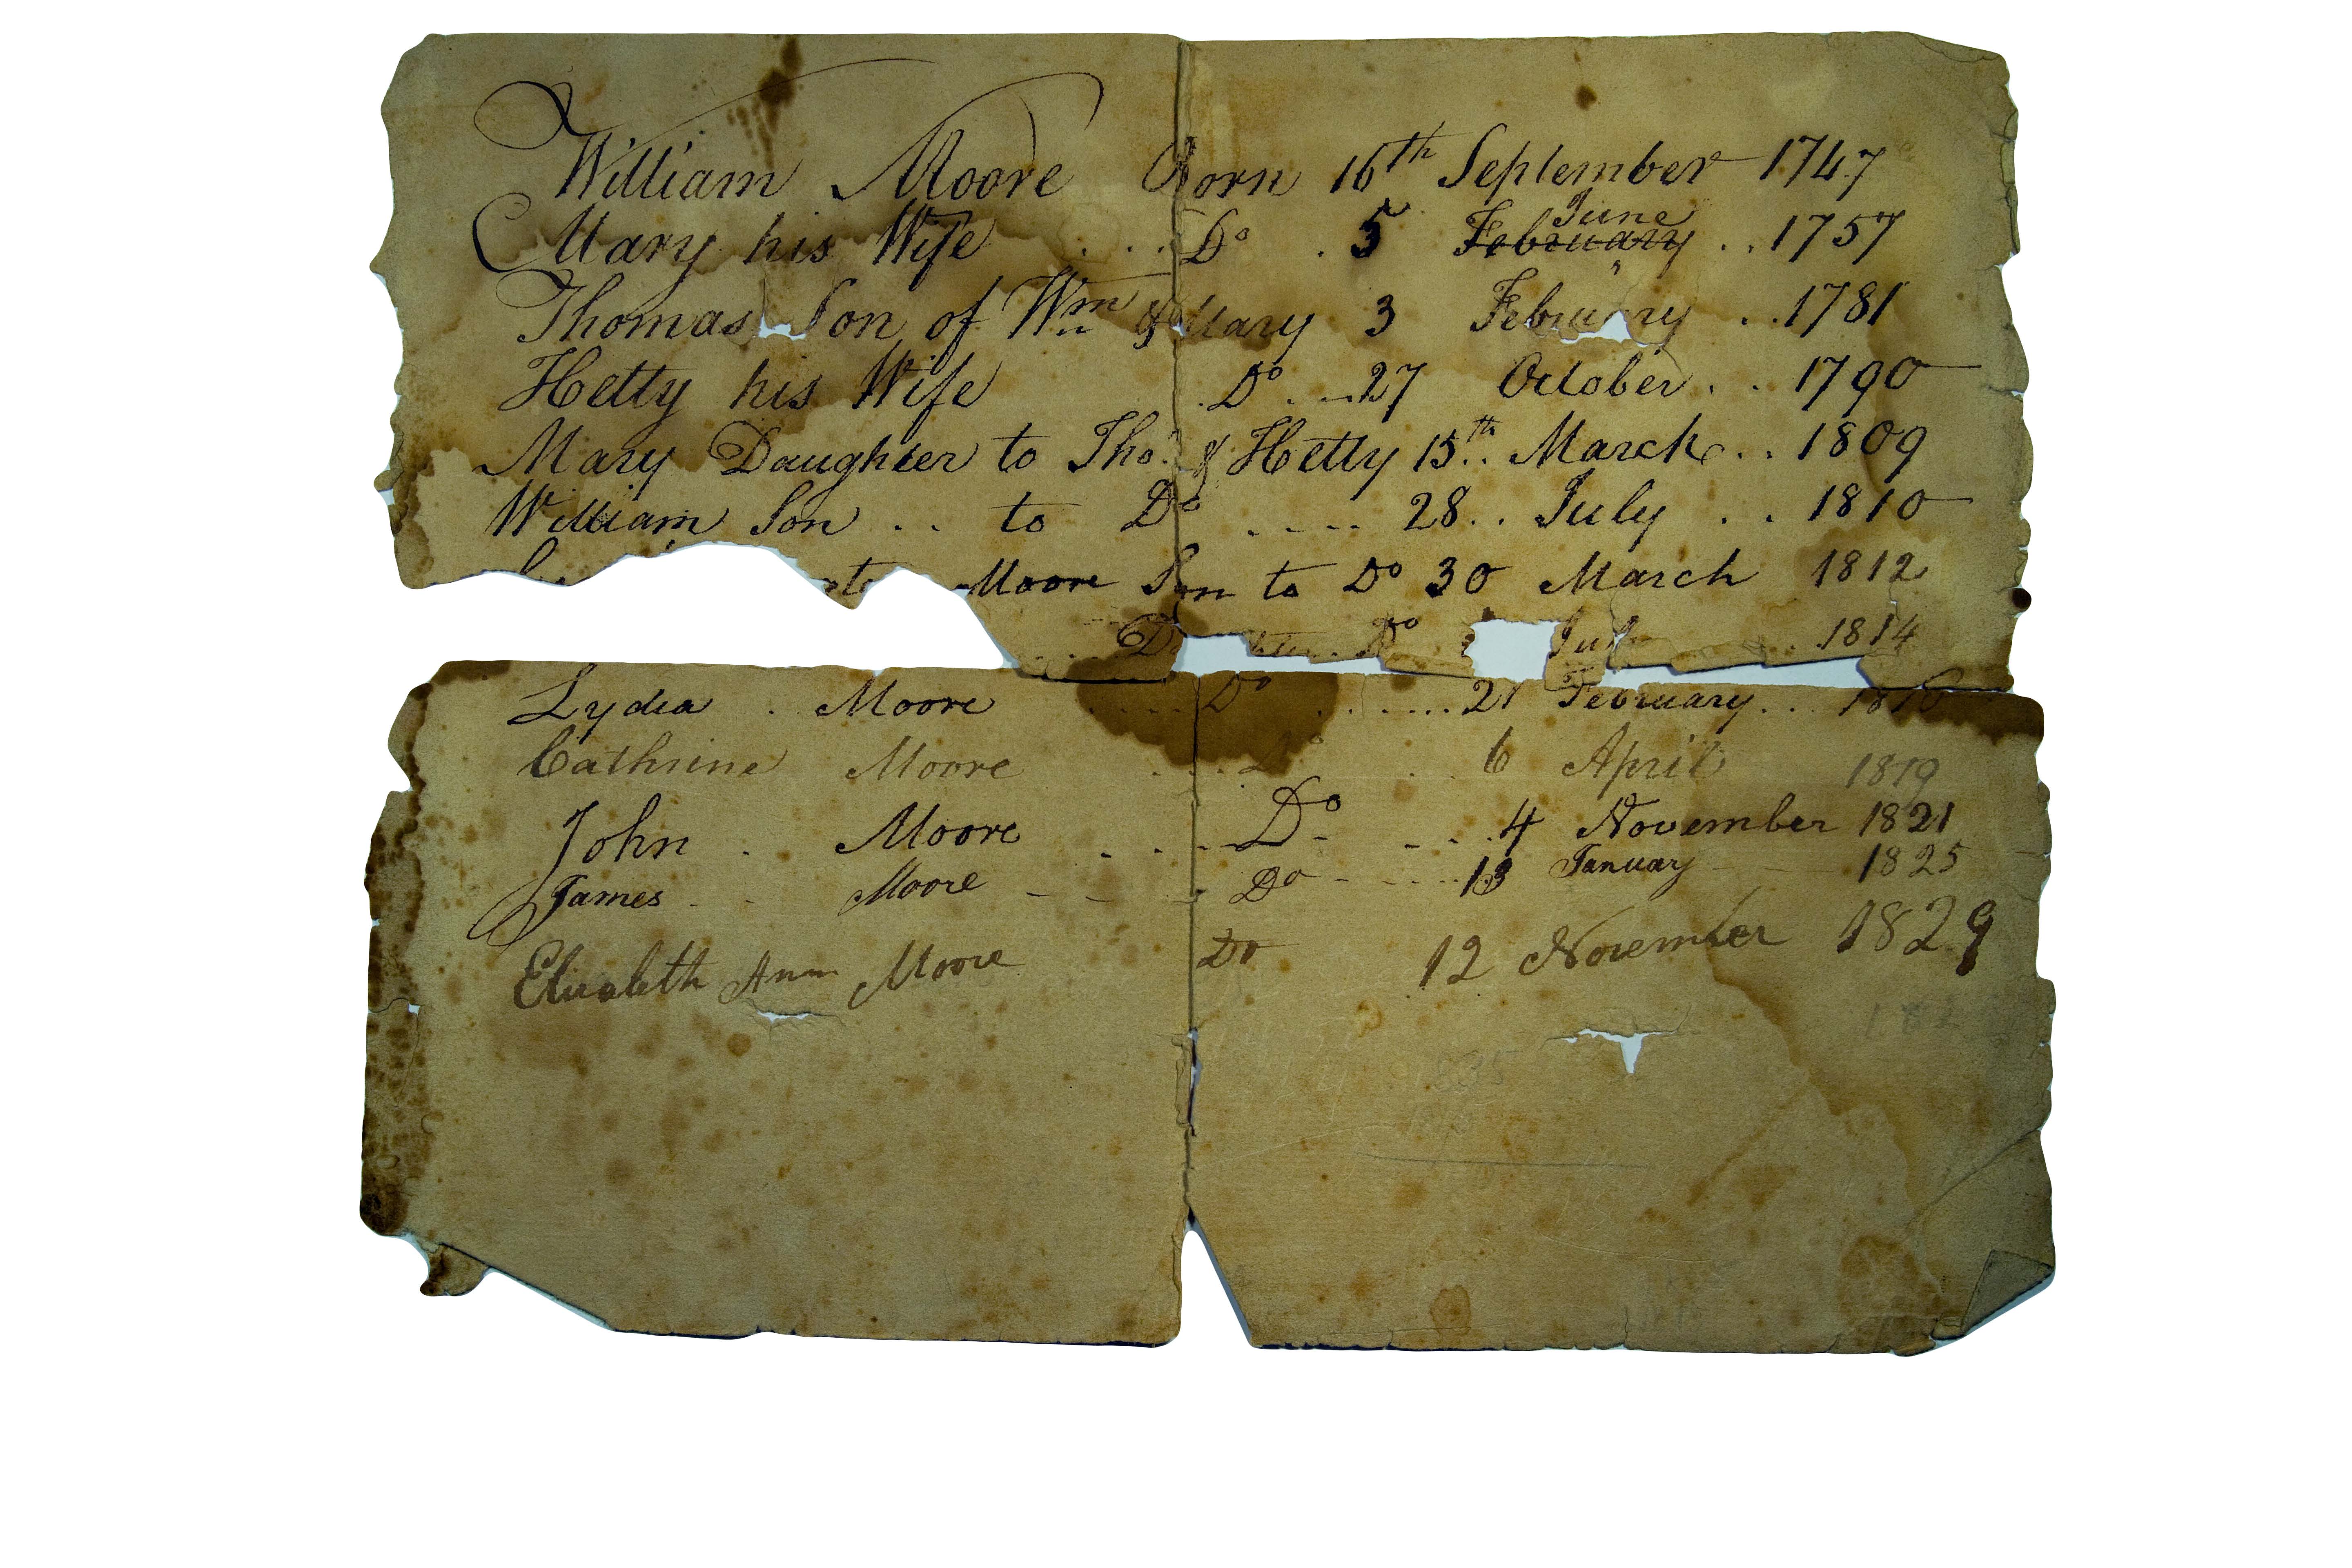 William Moore Born 16th September 1747
Mary his Wife . . . Do . 5 February June . . 1757
Thomas Son of Wm & Mary 3 February . . 1781
Hetty his Wife . Do . . . 27 October . . 1790
Mary Daughter to Tho. & Hetty 15th March . . 1809
William Son . . to Do . . . . 28 . . July . . 1810
Moore Son to Do 30 March 1812
Do 1814
Lydia . Moore . . . . Do . . . . . . 21 February . . . 1816
Cathrine Moore . . . 6 April 1819
John . Moore . . . Do - . . 4 November 1821
James - - Moore - - - Do - . . . . 13 January 1825
Elizabeth Ann Moore Do 12 November 1829
1835